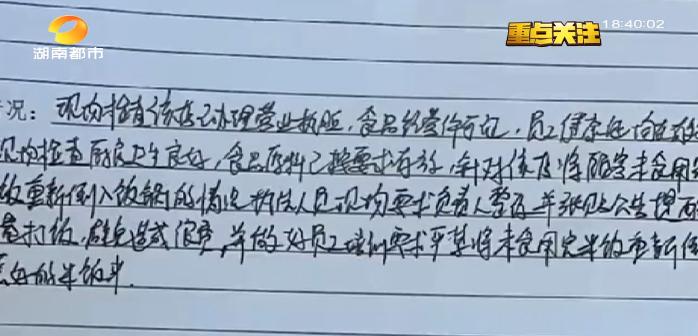 湖南都市
重点关注
18:40:02
况：现场检查该店已办理营业执照，食品经营许可证，员工健康证均在有效
现场检查厨房卫生良好，食品原料已按要求存放，针对该店将顾客未食用完
饭重新倒入饭锅的情况执法人员现场要求负责人整改，并张贴公告提醒
打饭，避免造成浪费，并做好员工培训要求严禁将未食用完米饭重新倒
的米饭中.